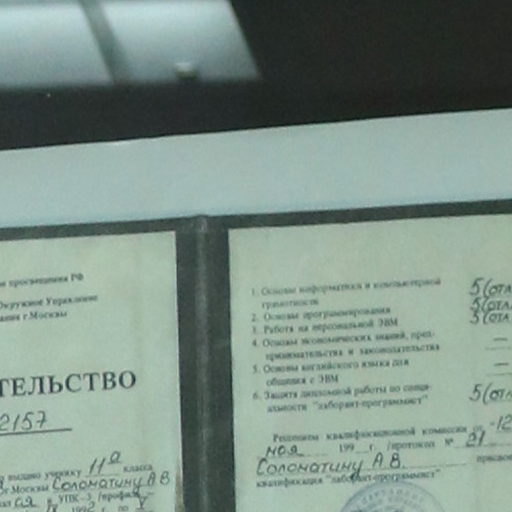 просвещения РФ
Окружное Управление
г.Москвы
ТЕЛЬСТВО
2157
выдано ученику 11а класса
г Москвы Соломатину А В
УПК-3 /профи
1992 г. по V
1. Основы информатики и компьютерной
грамотности 5(отл
2. Основы программирования 5(отл
3. Работа на персональной ЭВМ 5(отл
4. Основы экономических знаний, пред-
принимательства и законодательства —
5. Основы английского языка для
общения с ЭВМ —
6. Защита дипломной работы по специ-
альности "лаборант-программист" 5(отл
Решением квалификационной комиссии от "12
мая 199 г. /протокол № 21
Соломатину А.В. присвое
квалификация "лаборант-программист"